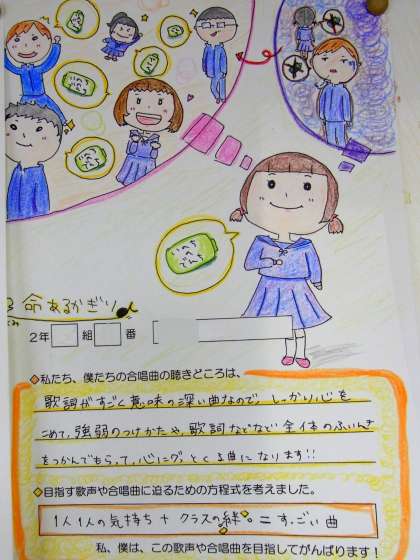 命あるかぎり
2年 組 番
◇私たち、僕たちの合唱曲の聴きどころは、
歌詞がすごく意味の深い曲なので、しっかり心を
こめて、強弱のつけかたや、歌詞などなど全体のふいんき
をつかんでもらって、心にグッとくる曲になります!!
◇目指す歌声や合唱曲に迫るための方程式を考えました。
1人1人の気持ち + クラスの絆。= すっごい曲
私、僕は、この歌声や合唱曲を目指してがんばります!